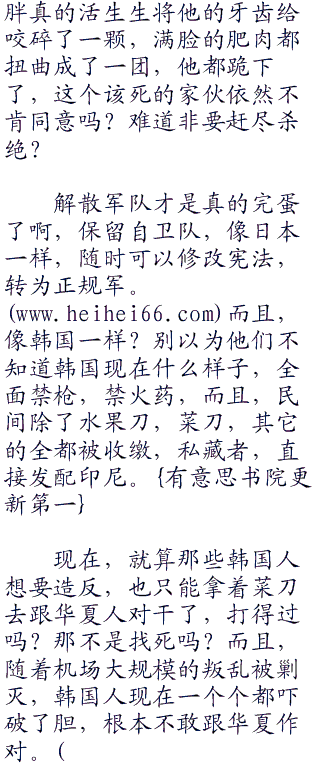 胖真的活生生将他的牙齿给
咬碎了一颗，满脸的肥肉都
扭曲成了一团，他都跪下
了，这个该死的家伙依然不
肯同意吗？难道非要赶尽杀
绝？
解散军队才是真的完蛋
了啊，保留自卫队，像日本
一样，随时可以修改宪法，
转为正规军。
(www.heihei66.com)而且，
像韩国一样？别以为他们不
知道韩国现在什么样子，全
面禁枪，禁火药，而且，民
间除了水果刀，菜刀，其它
的全都被收缴，私藏者，直
接发配印尼。{有意思书院更
新第一}
现在，就算那些韩国人
想要造反，也只能拿着菜刀
去跟华夏人对干了，打得过
吗？那不是找死吗？而且，
随着机场大规模的叛乱被剿
灭，韩国人现在一个个都吓
破了胆，根本不敢跟华夏作
对。(